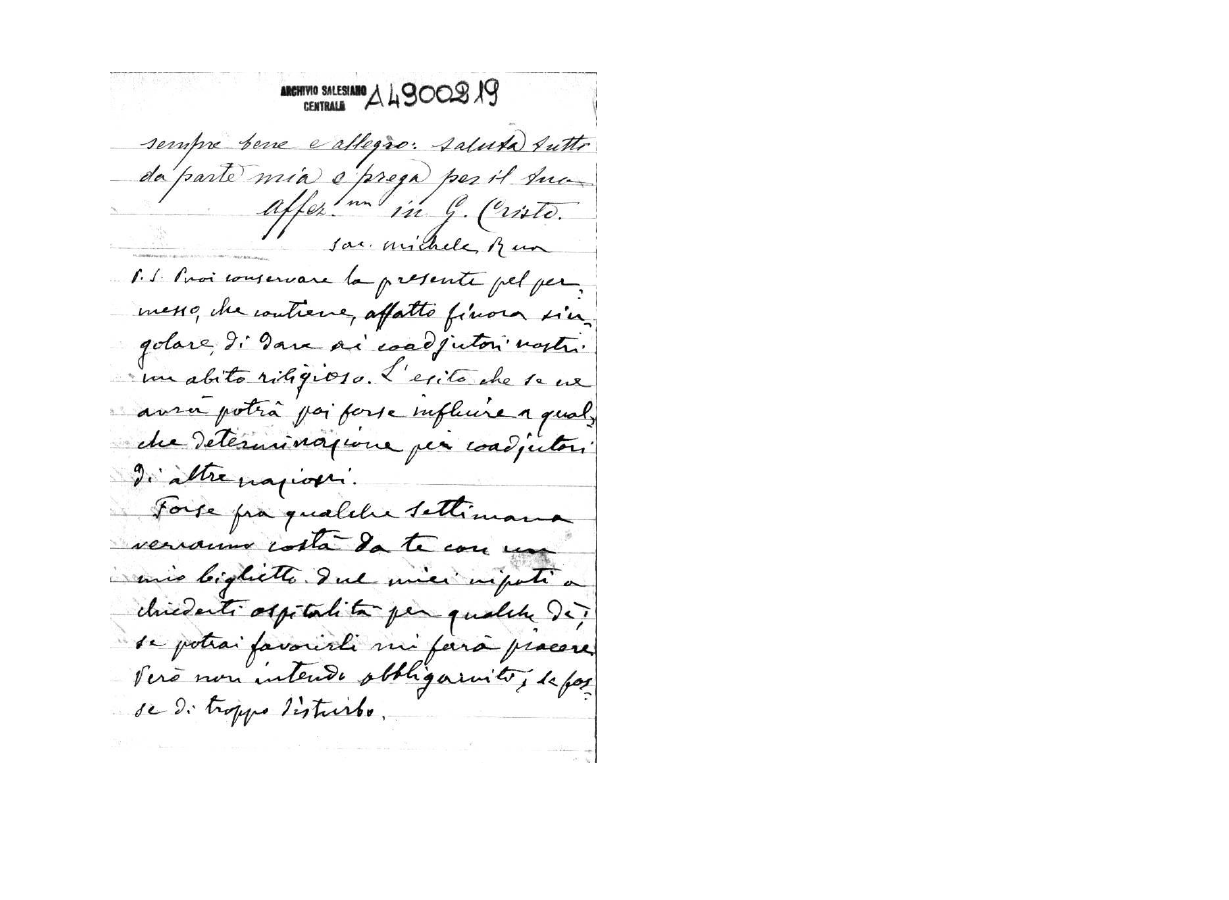 ARCHIVIO SALESIANO
CENTRALE
A4900219
sempre bene e allegro: saluta tutti
da parte mia e prega per il tuo
Affez.mo in G. Cristo.
Sac. Michele Rua
P.S. Puoi conservare la presente pel per-
messo, che contiene, affatto finora sin-
golare, di dare ai coadjutori nostri
un abito religioso. L'esito che se ne
avrà potrà poi forse influire a qual-
che determinazione pei coadjutori
di altre nazioni.
Forse fra qualche settimana
verranno costà da te con un
mio biglietto due miei nipoti a
chiederti ospitalità per qualche dì;
se potrai favorirli mi farà piacere
Però non intendo obbligarviti, se fos-
se di troppo disturbo.